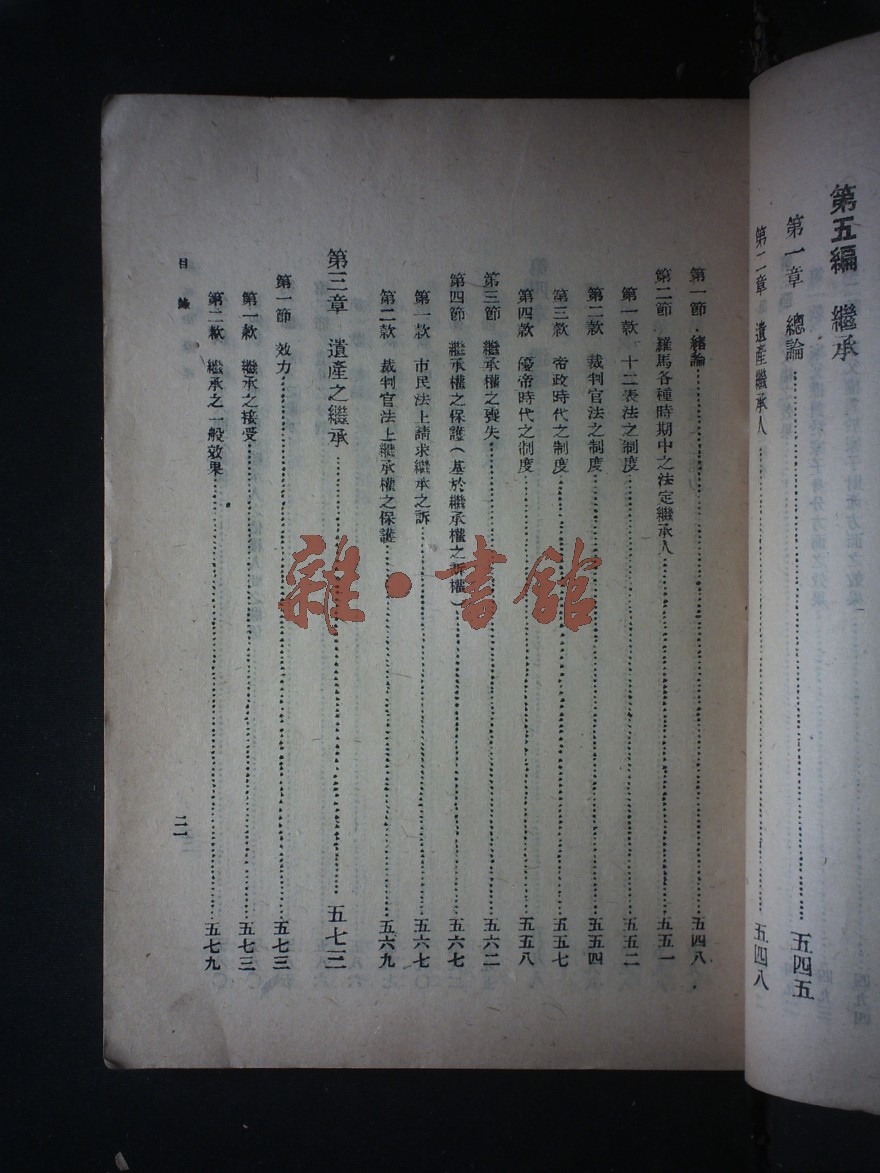 第五編 繼承
第一章 總論……五四五
第二章 遺產繼承人……五四八
第一節 緒論……五四八
第二節 羅馬各種時期中之法定繼承人……五五一
第一款 十二表法之制度……五五二
第二款 裁判官法之制度……五五四
第三款 帝政時代之制度……五五七
第四款 優帝時代之制度……五五八
第三節 繼承權之喪失……五六二
第四節 繼承權之保護(基於繼承權之訴權)……五六七
第一款 市民法上請求繼承之訴……五六七
第二款 裁判官法上繼承權之保護……五六九
第三章 遺產之繼承……五七三
第一節 效力……五七三
第一款 繼承之接受……五七三
第二款 繼承之一般效果……五七九
目錄
二一
雜·書館